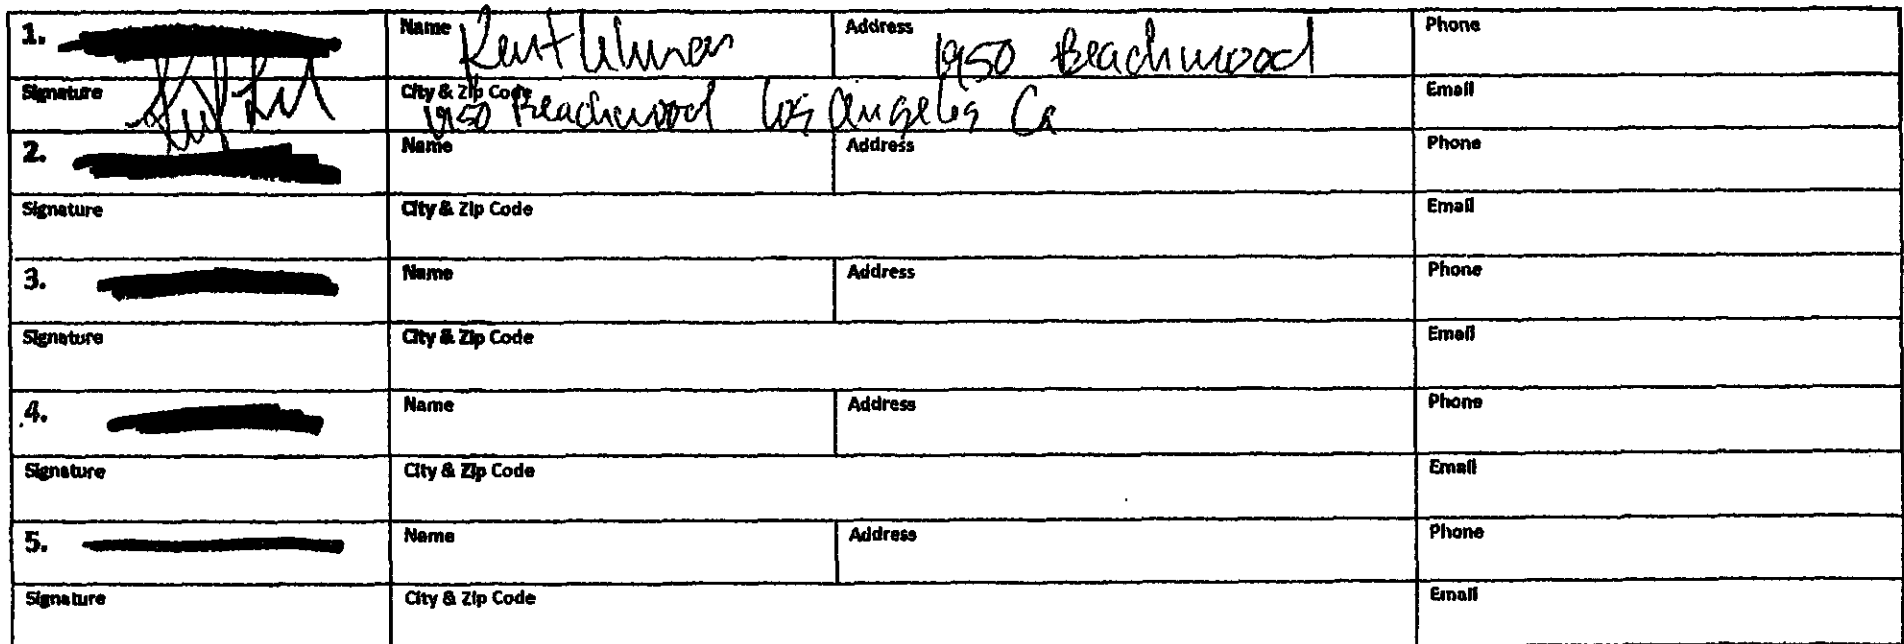 1. Name Kent Address 1950 Beachwood Phone
Signature City & Zip Code 1950 Beachwood Los Angeles Ca Email
2. Name Address Phone
Signature City & Zip Code Email
3. Name Address Phone
Signature City & Zip Code Email
4. Name Address Phone
Signature City & Zip Code Email
5. Name Address Phone
Signature City & Zip Code Email